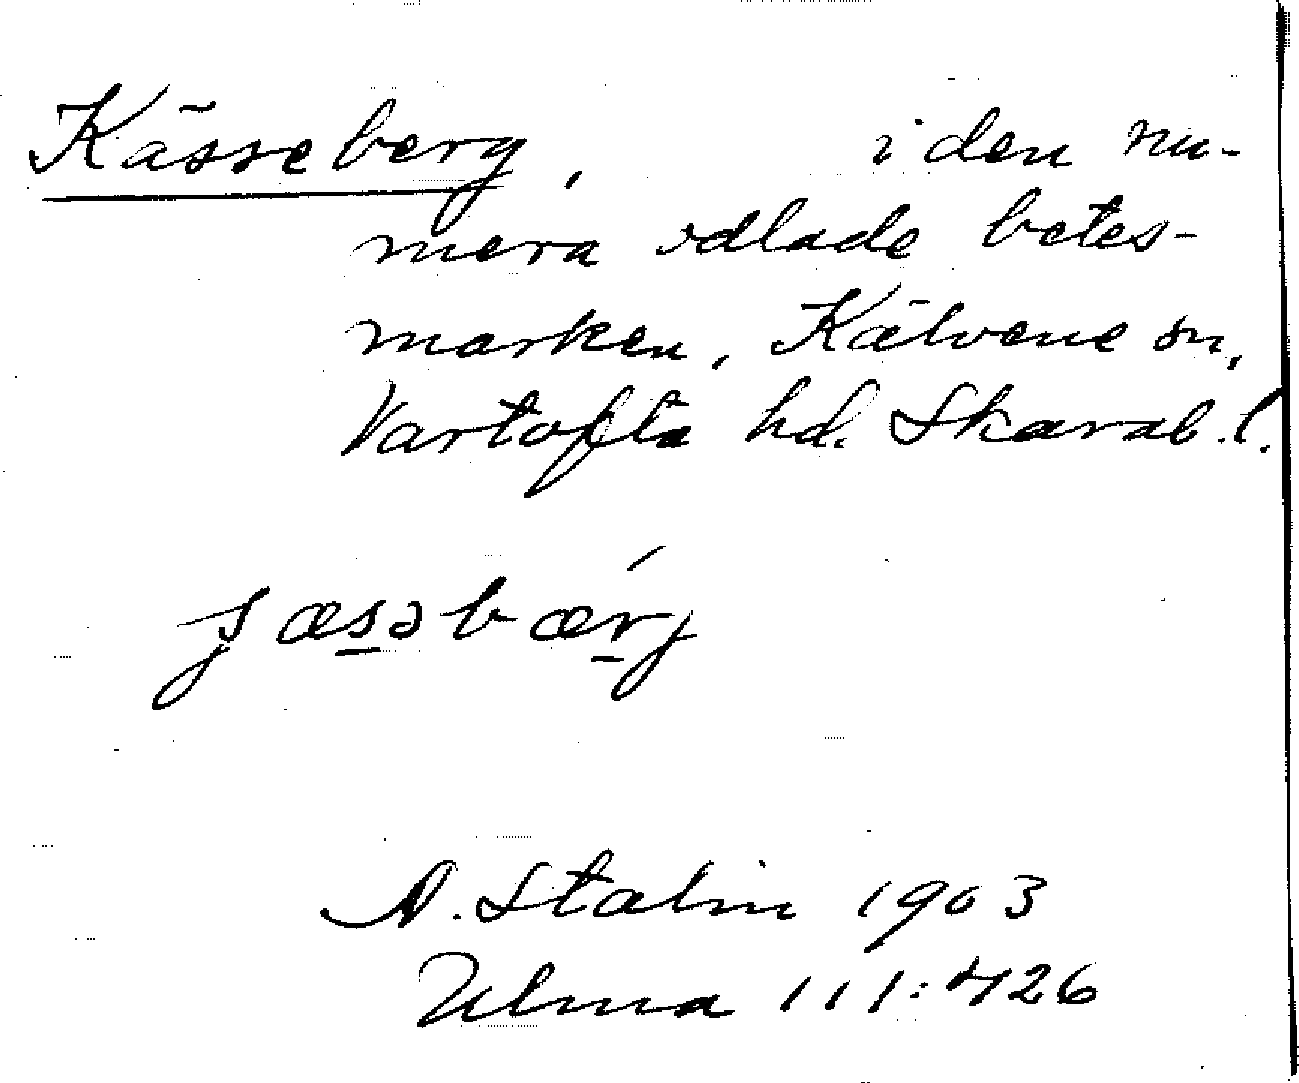 Kässeberg, i den nu-
mera odlade betes-
marken, Kälvene sn,
Vartofta hd. Skarab. l.
ʃæsəbærj
A. Stalin 1903
Ulma 111:426